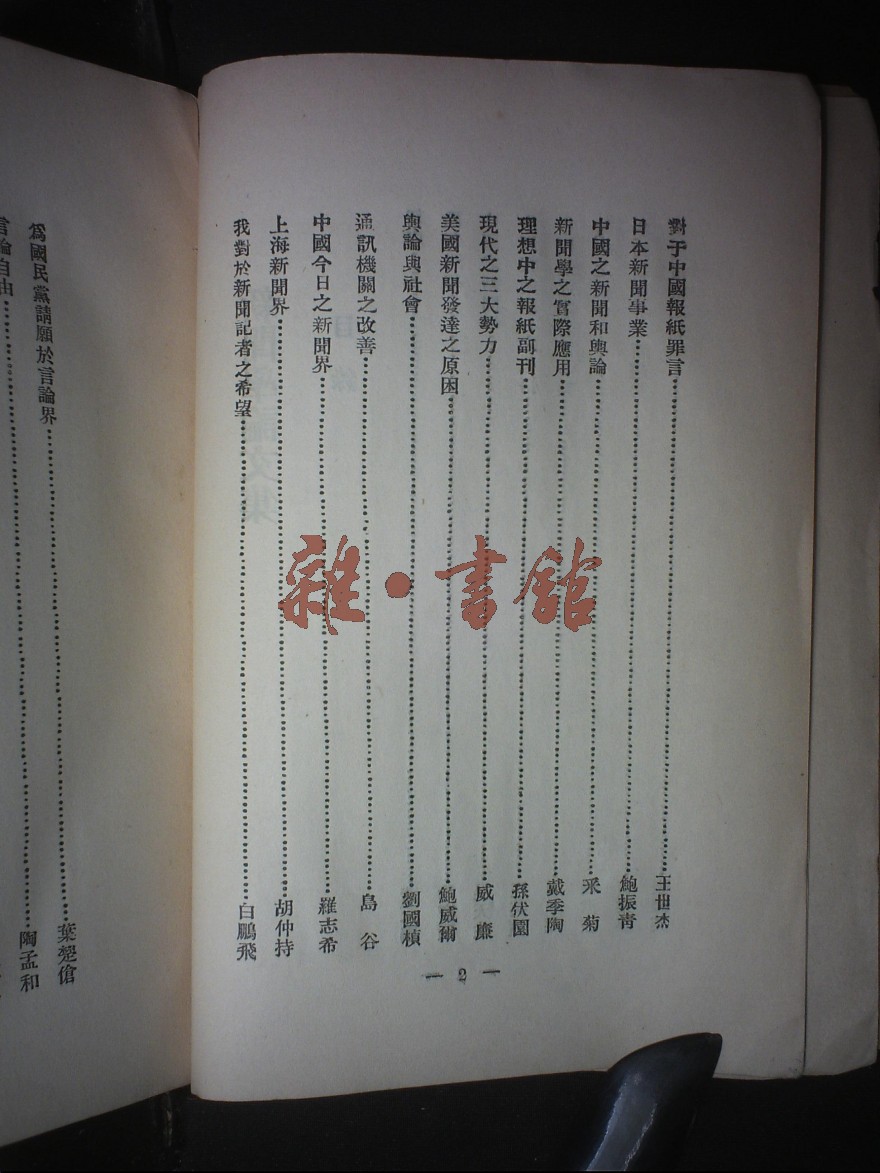 對于中國報紙罪言……王世杰
日本新聞事業……鮑振青
中國之新聞和輿論……釆菊
新聞學之實際應用……戴季陶
理想中之報紙副刊……孫伏園
現代之三大勢力……威廉
美國新聞發達之原因……鮑威爾
輿論與社會……劉國楨
通訊機關之改善……島谷
中國今日之新聞界……羅志希
上海新聞界……胡仲持
我對於新聞記者之希望……白鵬飛
— 2 —
爲國民黨請願於言論界……葉楚傖
言論自由……陶孟和
雜·書館